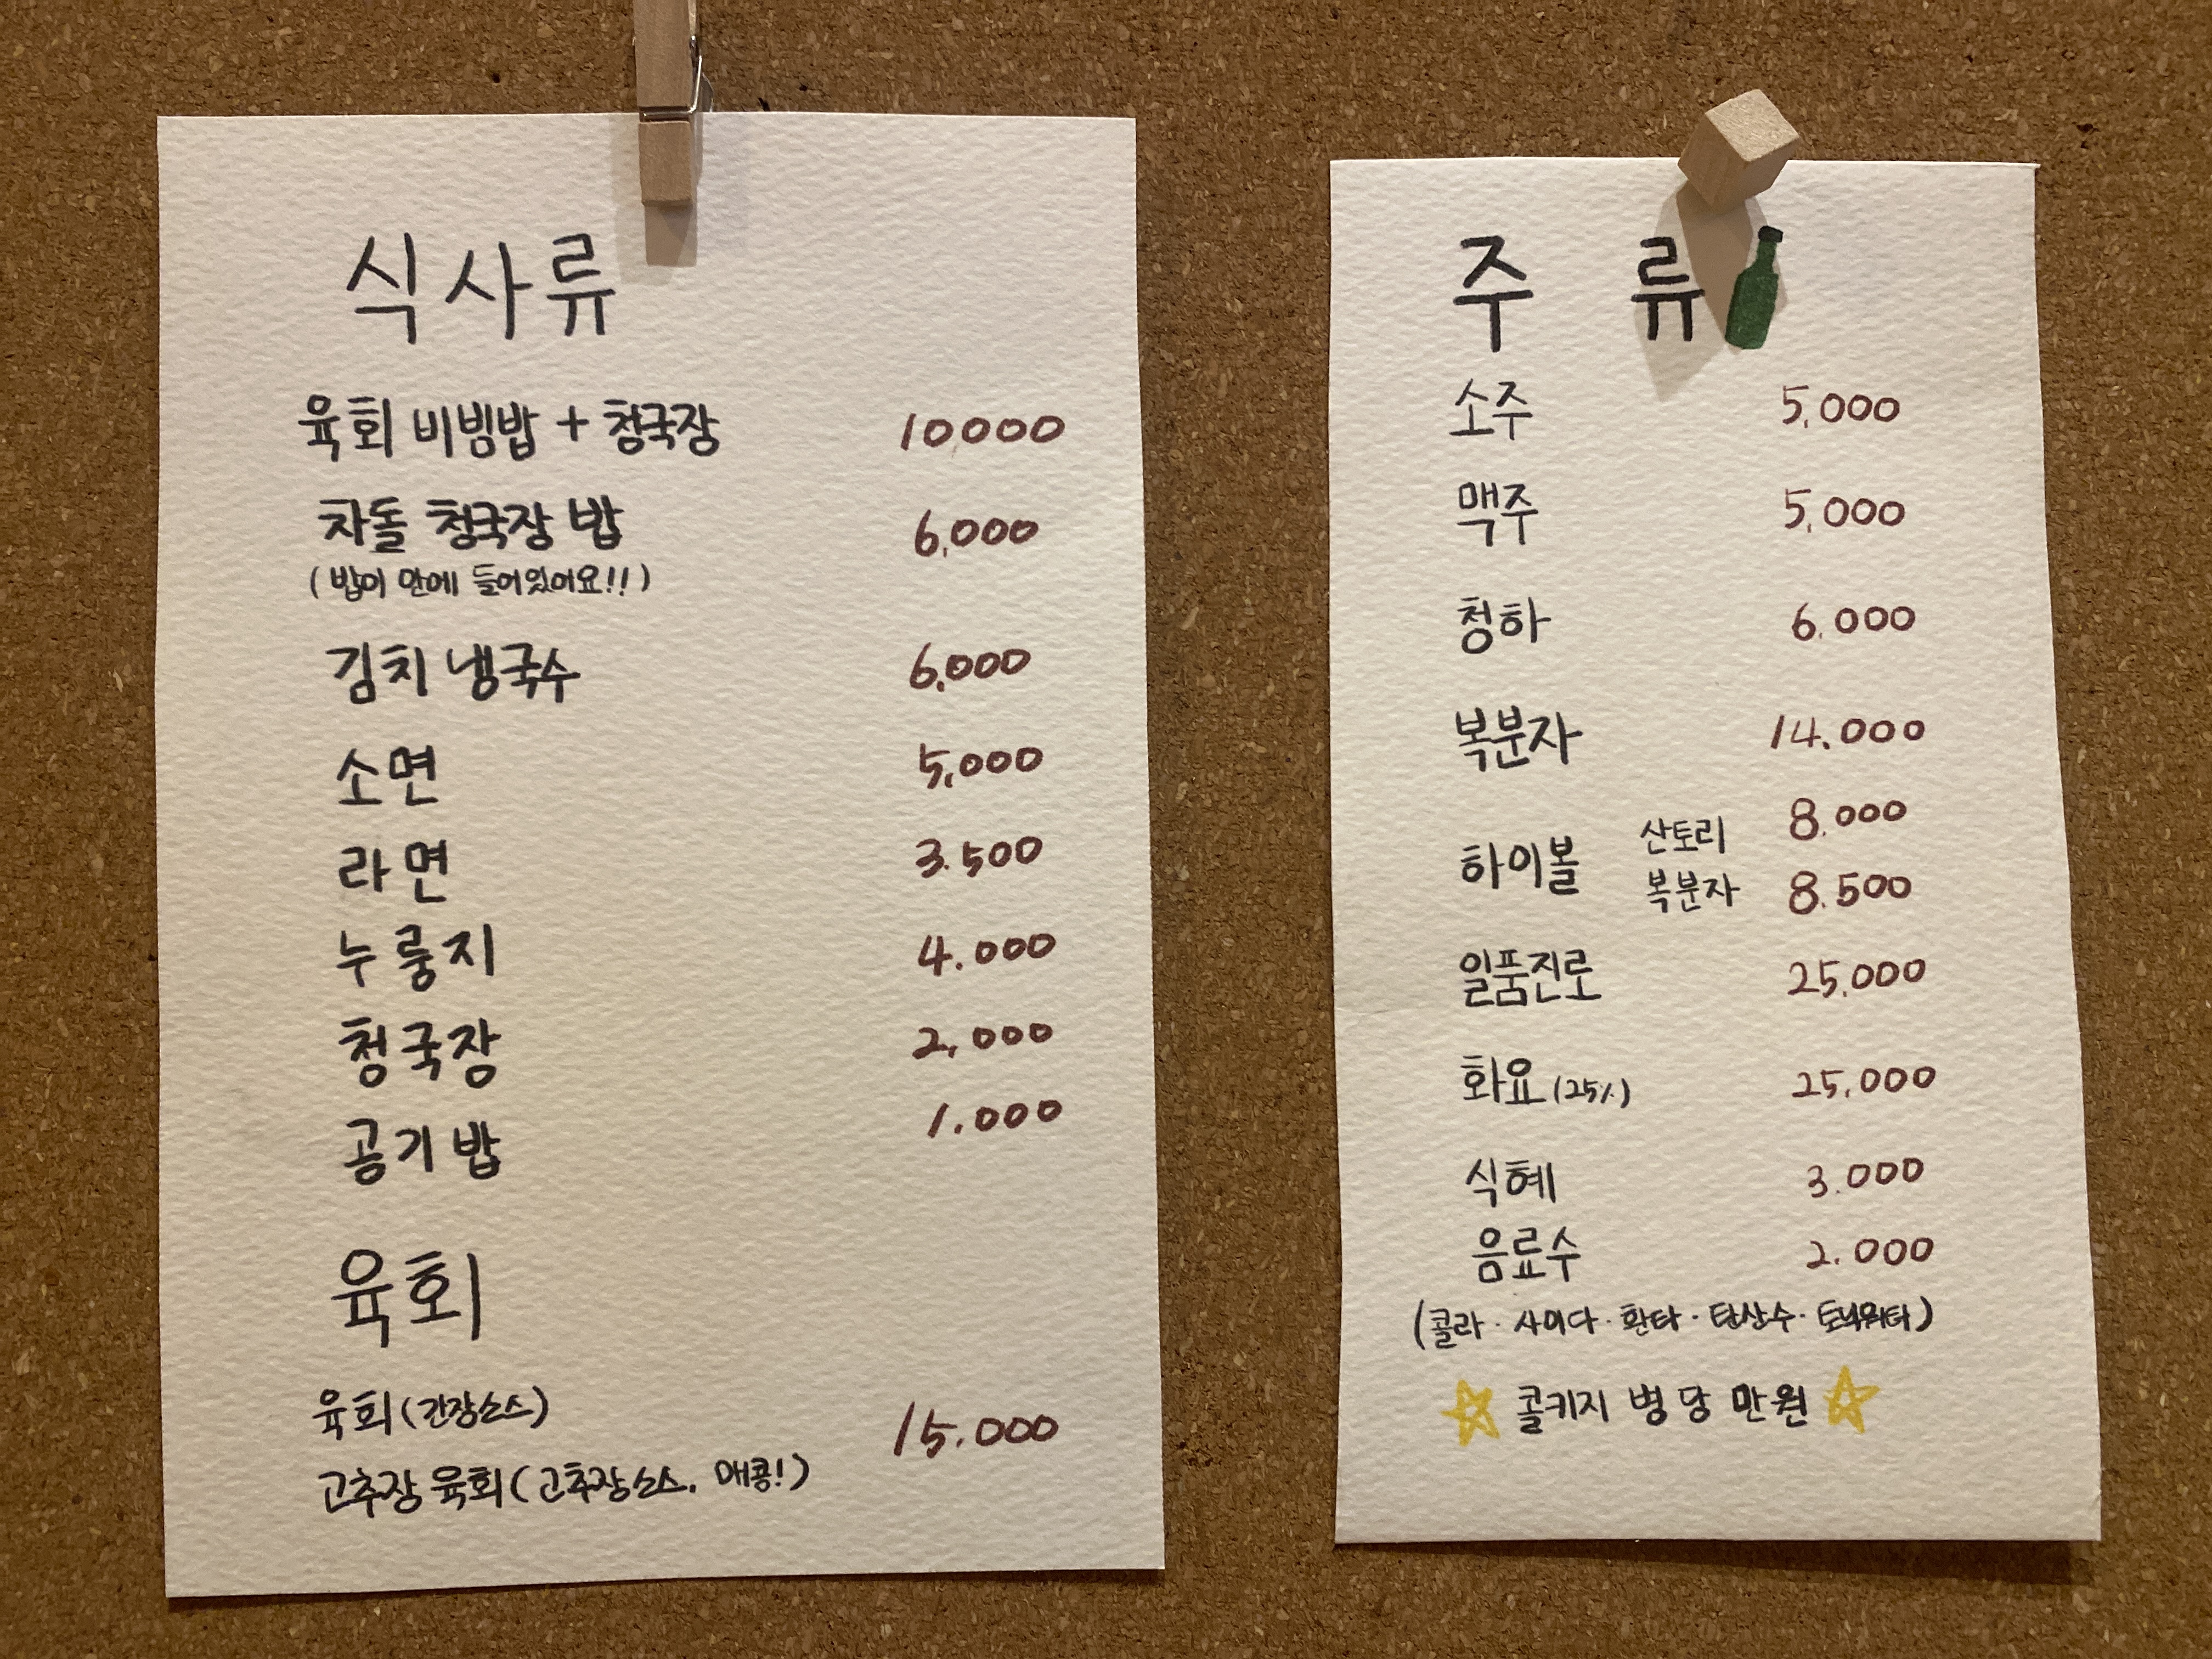 식사류
육회 비빔밥 + 청국장 10000
차돌 청국장 밥 6,000
(밥이 안에 들어있어요!!)
김치 냉국수 6,000
소면 5,000
라면 3.500
누룽지 4.000
청국장 2,000
공기밥 1.000
육회
육회(간장소스)
15.000
고추장 육회(고추장소스. 매콤!)
주 류
소주 5,000
맥주 5,000
청하 6.000
복분자 14.000
하이볼 산토리 8.000
복분자 8.500
일품진로 25,000
화요(25%) 25.000
식혜 3.000
음료수 2.000
(콜라·사이다·환타·탄산수·토닉워터)
콜키지 병 당 만원